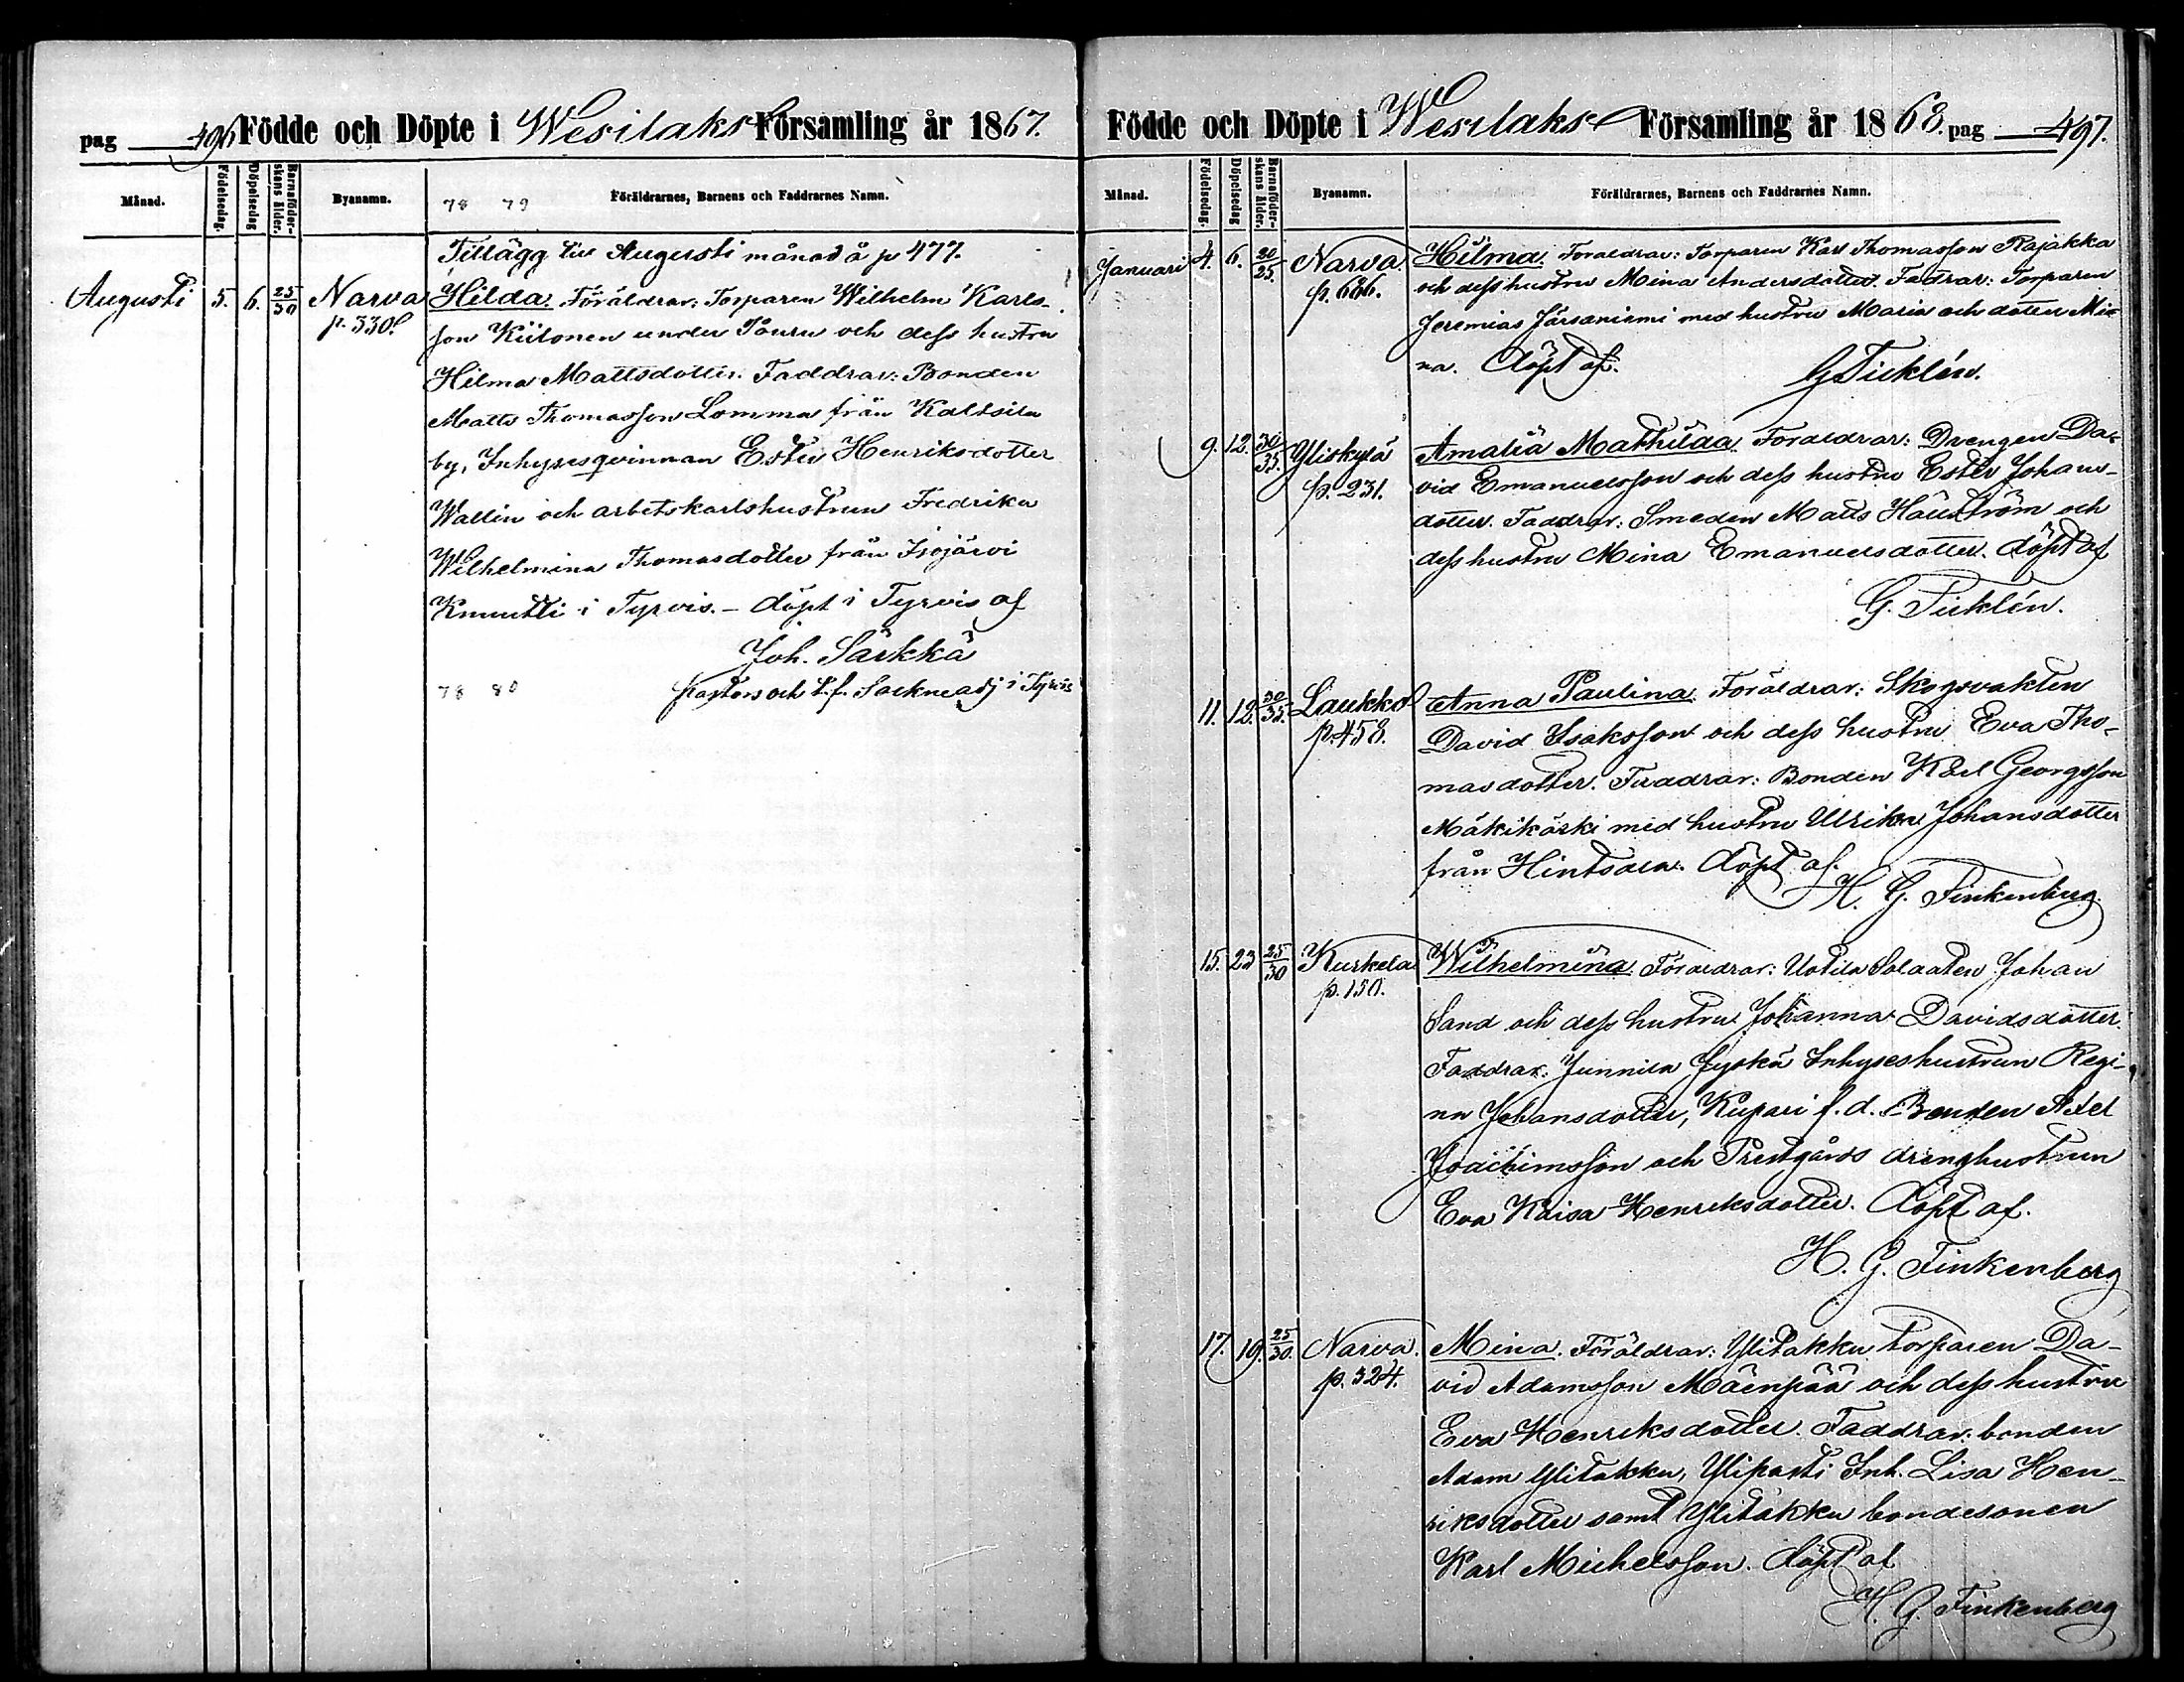 pag 496 Födde och Döpte i Wesilaks Församling år 1867.
Månad. Födelsedag. Döpelsedag Barnaföderskans ålder. Byanamn. Föräldrarnes, Barnens och Faddrarnes Namn.
78 79
Tillägg till Augusti månad å p 477.
Augusti 5. 6. 25/30 Narva Hilda. Föräldrar: Torparen Wilhelm Karls-
p. 330. son Kiilonen under Pouru och dess hustru
Hilma Mattsdotter. Faddrar: Bonden
Matts Thomasson Lomma från Kaltsila
by, Inhysesqvinnan Ester Henriksdotter
Wallin och arbetskarlshustrun Fredrika
Wilhelmina Thomasdotter från Isojärvi
Knuutti i Tyrvis. – döpt i Tyrvis af
Joh. Särkkä
78 80 Pastors och t.f. Sockneadj i Tyrvis
Födde och Döpte i Wesilaks Församling år 1868. pag 497.
Månad. Födelsedag. Döpelsedag Barnaföderskans ålder. Byanamn. Föräldrarnes, Barnens och Faddrarnes Namn.
Januari 4. 6. 20/25. Narva. Hilma. Föräldrar: Torparen Karl Thomasson Rajakka
p. 636. och dess hustru Mina Andersdotter. Fadrar: Torparen
Jeremias Järsäniemi med hustru Maria och dotter Mi-
na. döpt af.
G Ticklén.
9. 12. 30/35. Yliskylä Amalia Mathilda Föräldrar: Drengen Da-
p. 231. vid Emanuelsson och dess hustru Ester Johans-
dotter. Faddrar: Smeden Matts Hällström och
dess hustru Mina Emanuelsdotter. döpt af
G. Ticklén.
11. 12. 30/35. Laukko Anna Paulina. Föräldrar: Skogsvakten
p. 458. David Isaksson och dess hustru Eva Tho-
masdotter. Faddrar: Bonden Karl Georgsson
Mäkikoski med hustru Ulrika Johansdotter
från Hintsala. döpt af.
H. G. Finkenberg.
15. 23 25/30 Kurkela Wilhelmina. Föräldrar: Uotila Soldaten Johan
p. 150. Sand och dess hustru Johanna Davidsdotter.
Faddrar: Junnila Jyskä Inhyseshustrun Regi-
na Johansdotter, Kupari f. d. Bonden Axel
Joachimsson och Prestgårds drenghustrun
Eva Kaisa Henriksdotter. döpt af.
H. G. Finkenberg
17. 19. 25/30. Narva. Mina. Föräldrar: Ylitakku torparen Da-
p. 324. vid Adamsson Mäenpää och dess hustru
Eva Henriksdotter. Faddrar: bonden
Adam Ylitakku, Yliposti Inh. Lisa Hen-
riksdotter samt Ylitakku bondesonen
Karl Michelsson. döpt af
H. G. Finkenberg